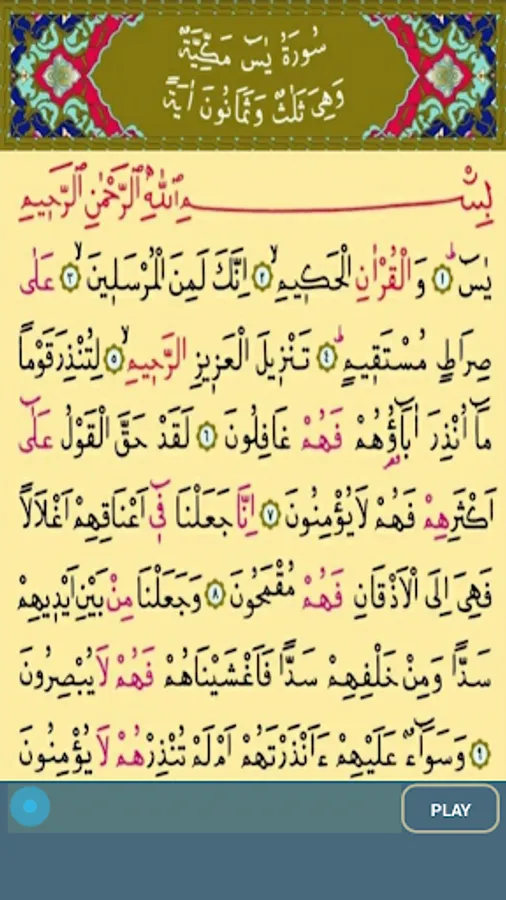 سُورَةُ يٰسٓ مَكِّيَّةٌ
وَهِيَ ثَلٰثٌ وَثَمَانُونَ اٰيَةً
بِسْمِ اللّٰهِ الرَّحْمٰنِ الرَّحِيمِ
يٰسٓ ﴿١﴾ وَالْقُرْاٰنِ الْحَكِيمِ ﴿٢﴾ اِنَّكَ لَمِنَ الْمُرْسَلِينَ ﴿٣﴾ عَلٰى
صِرَاطٍ مُسْتَقِيمٍ ﴿٤﴾ تَنْزِيلَ الْعَزِيزِ الرَّحِيمِ ﴿٥﴾ لِتُنْذِرَ قَوْمًا
مَٓا اُنْذِرَ اٰبَٓاؤُهُمْ فَهُمْ غَافِلُونَ ﴿٦﴾ لَقَدْ حَقَّ الْقَوْلُ عَلٰٓى
اَكْثَرِهِمْ فَهُمْ لَا يُؤْمِنُونَ ﴿٧﴾ اِنَّا جَعَلْنَا فِٓي اَعْنَاقِهِمْ اَغْلَالًا
فَهِيَ اِلَى الْاَذْقَانِ فَهُمْ مُقْمَحُونَ ﴿٨﴾ وَجَعَلْنَا مِنْ بَيْنِ اَيْدِيهِمْ
سَدًّا وَمِنْ خَلْفِهِمْ سَدًّا فَاَغْشَيْنَاهُمْ فَهُمْ لَا يُبْصِرُونَ
﴿٩﴾ وَسَوَٓاءٌ عَلَيْهِمْ ءَاَنْذَرْتَهُمْ اَمْ لَمْ تُنْذِرْهُمْ لَا يُؤْمِنُونَ
PLAY